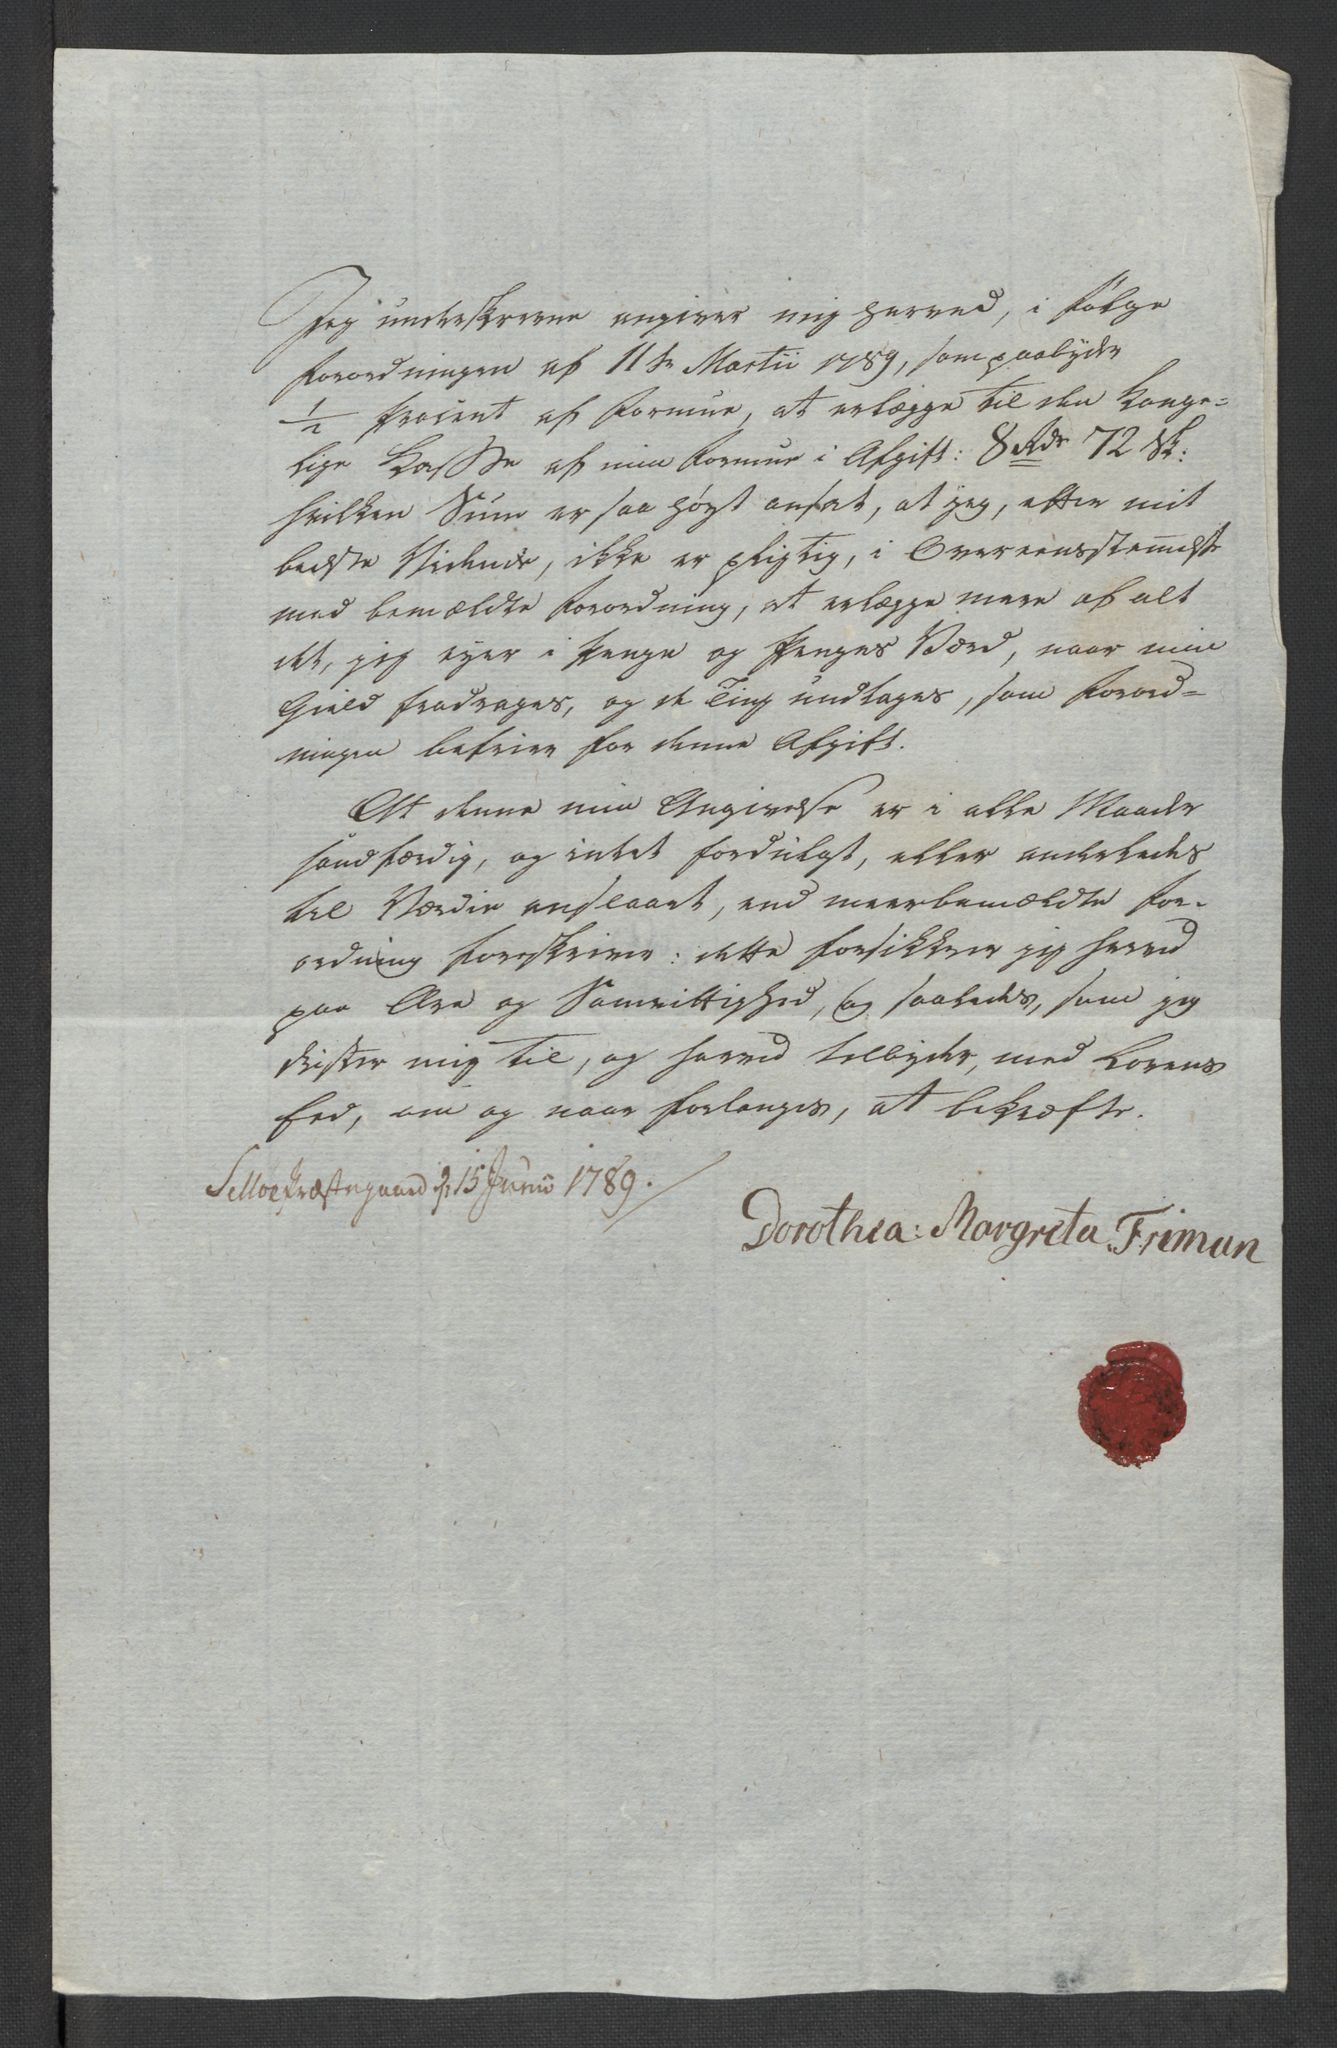 Jeg underskrevne angiver mig herved, i følge
Forordningen af 11te Martii 1789, som paabyder
1/2 Procent af Formue, at erlægge til den Konge-
lige Kasse af min Formue i Afgift: 8 Rdr 72 Sk:
hvilken Sum er saa høyt ansat, at jeg, efter mit
bedste Vidende, ikke er pligtig, i Overeensstemelse
med bemældte Forordning, at erlægge mere af alt
det, jeg eyer i Penge og Penges Værd, naar min
Gield fradrages, og de Ting undtages, som Forord-
ningen befrier for denne Afgift.
At denne min Angivelse er i alle Maader
sandfærdig, og intet fordulgt, eller anderledes
til Værdie anslaaet, end meerbemældte For-
ordning foreskriver: dette forsikkrer jeg herved
paa Ære og Samvittighed, og saaledes, som jeg
drister mig til, og herved tilbyder, med Lovens
Eed, om og naar forlanges, at bekræfte.
Selloe Præstegaard d 15 Junii 1789.
Dorothea: Margreta Friman